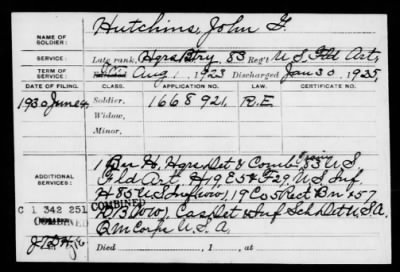 NAME OF SOLDIER: Hutchins, John G.
SERVICE: Late rank, Hqrs Btry. 83 Reg't U S Fld Art,
TERM OF SERVICE: Aug 1, 1923 Discharged Jan 30, 1925,
DATE OF FILING. CLASS. APPLICATION NO. LAW. CERTIFICATE NO.
1930 June Soldier, 1668921, R.E.
Widow,
Minor,
ADDITIONAL SERVICES: Hqrs Det & Comb 83 U S
Fld Art H 19 E 5 & F 29 U S Inf
H 85 U S Inf 19 Co 5 Rect Bn 157
Cas Det & Inf Sch Det U S A
C 1 342 251 COMBINED
COMBINED Q M Corps U. S. A.
Died , 1 , at